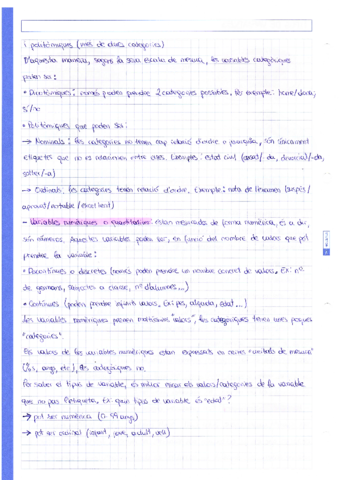 i politòmiques (més de dues categories)
D'aquesta manera, segons la seva escala de mesura, les variables categòriques
poden ser:
• Dicotòmiques: només poden prendre 2 categories possibles, Per exemple: home/dona,
sí/no
• Politòmiques que poden ser:
→ Nominals: les categories no tenen cap relació d'ordre o jerarquia, són únicament
etiquetes que no es relacionen entre elles. Exemples: estat civil (casat/-da, divorciat/-da,
solter/-a)
→ Ordinals: les categories tenen relació d'ordre. Exemple: nota de l'examen (suspès/
aprovat/notable/excel·lent)
- Variables numèriques o quantitatives: estan mesurades de forma numèrica, és a dir,
són números. Aquestes variables poden ser, en funció del nombre de valors que pot
prendre la variable:
• Discontínues o discretes (només poden prendre un nombre concret de valors. Ex: nº
de germans, subjectes a classe, nº d'alumnes...)
• Contínues (poden prendre infinits valors, Ex: pes, alçada, edat...)
Les variables numèriques prenen moltíssims "valors", les categòriques tenen unes poques
"categories".
Els valors de les variables numèriques estan expressats en unitats de mesura
(kg, anys, etc), les categòriques no.
Per saber el tipus de variable, és millor mirar els valors/categories de la variable
que no pas l'etiqueta, Ex: quin tipus de variable és "edat"?
→ pot ser numèrica (0-99 anys)
→ pot ser ordinal (infant, jove, adult, vell)